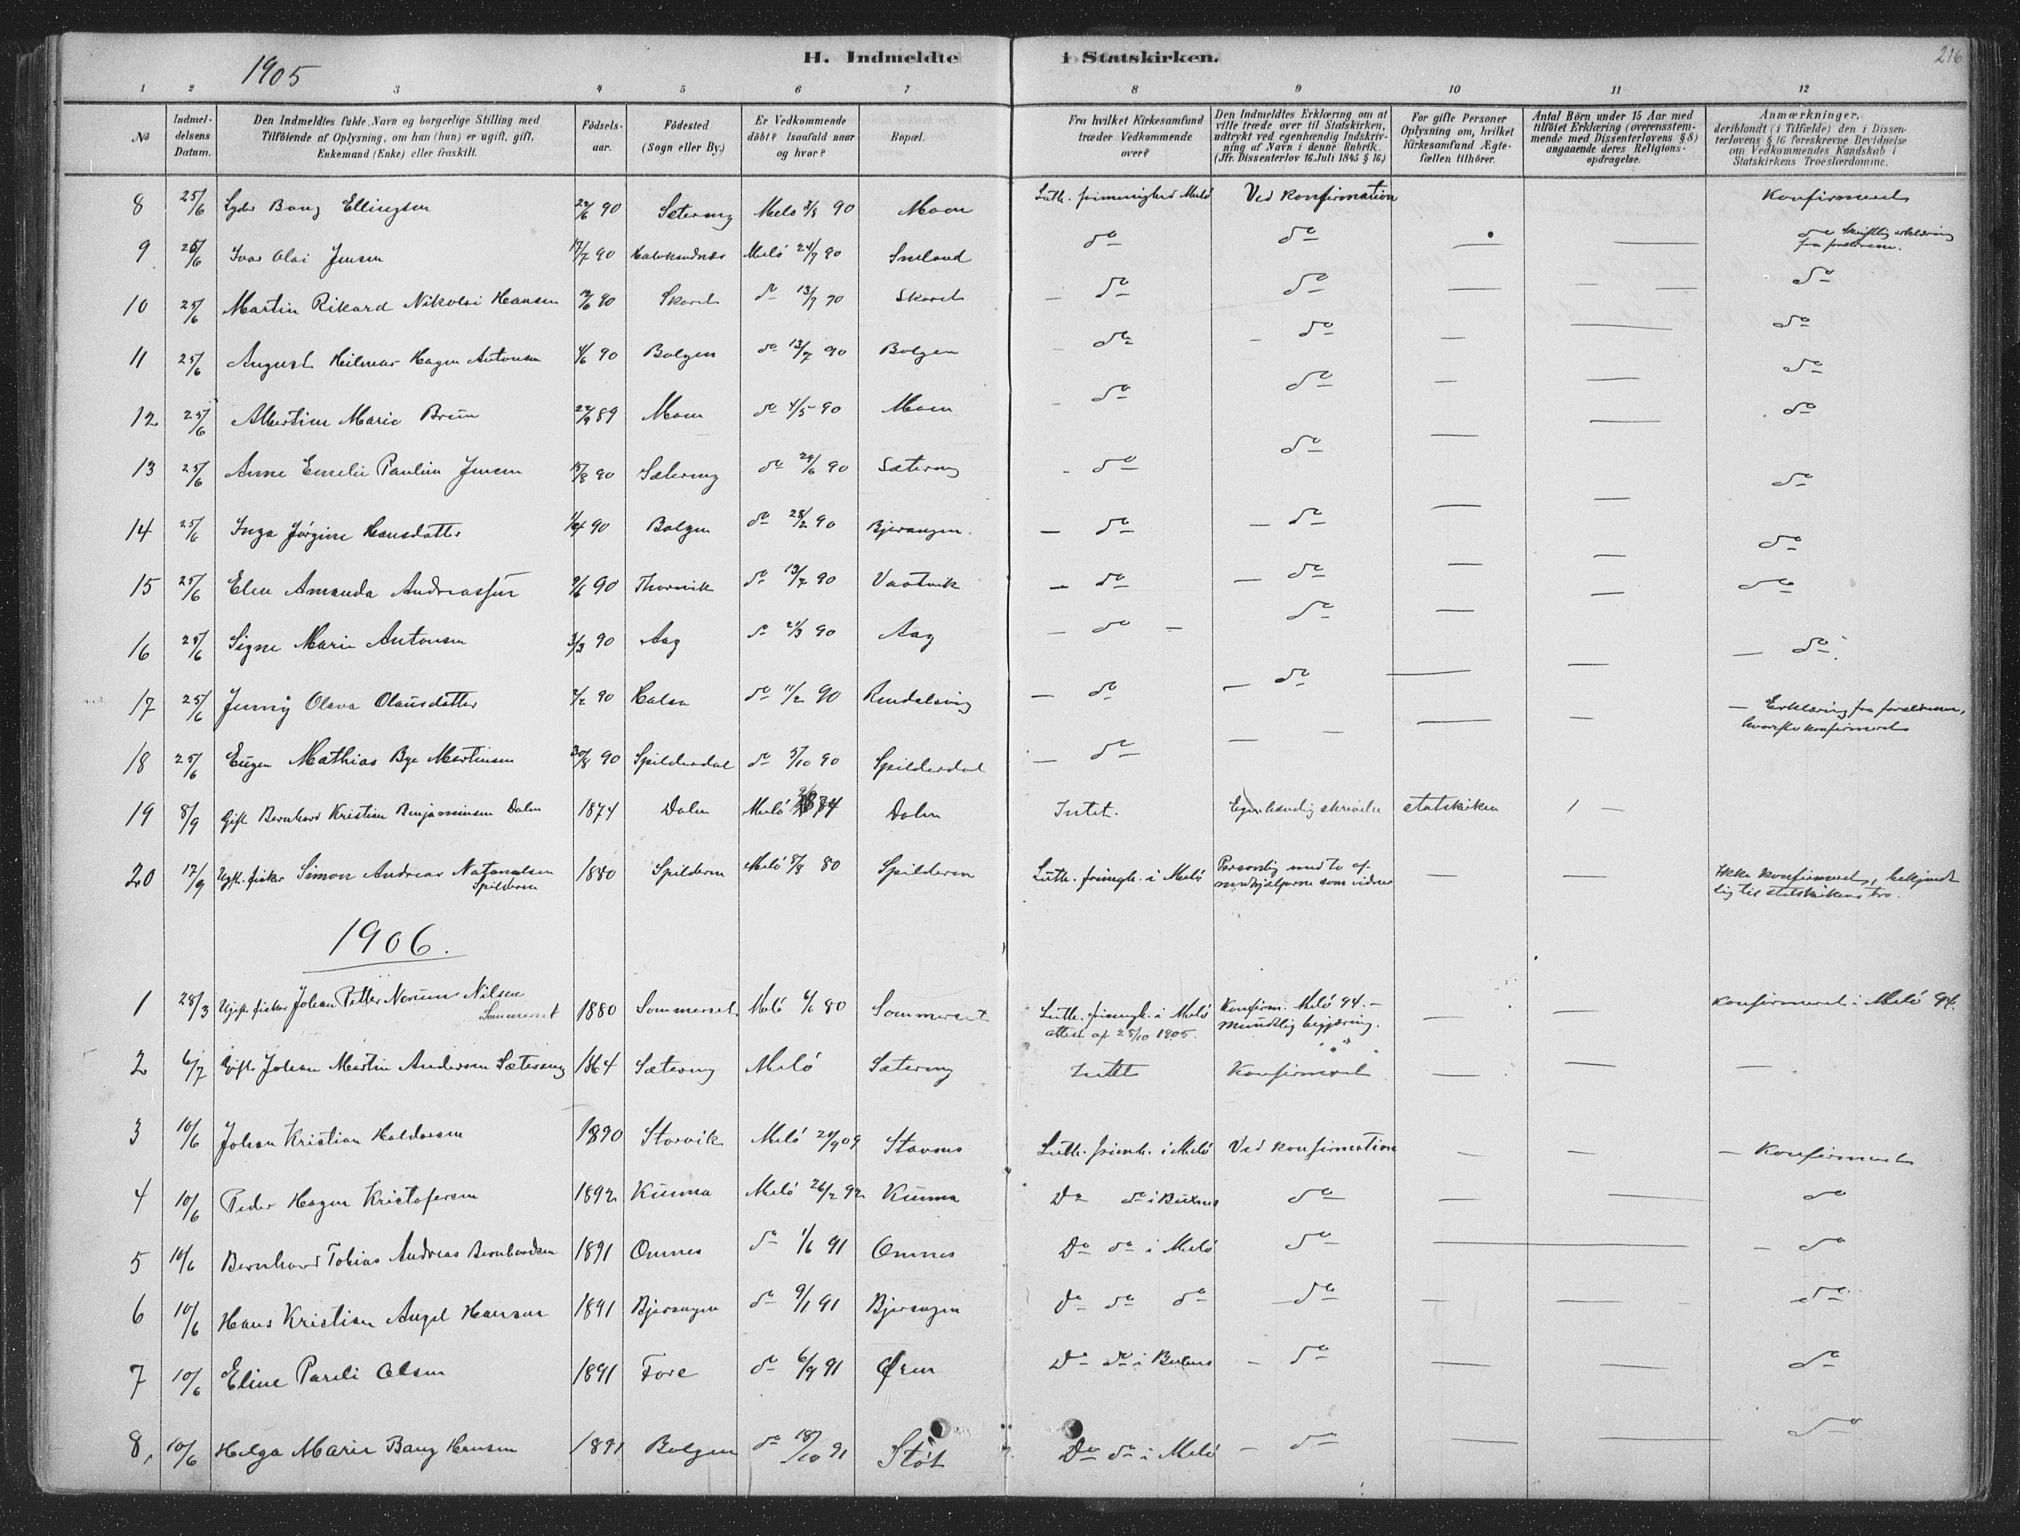 1905
H. Indmeldte i Statskirken.
216
1 2 3 4 5 6 7 8 9 10 11 12
No
Indmel-
delsens
Datum.
Den Indmeldtes fulde Navn og borgerlige Stilling med
Tilföiende af Oplysning, om han (hun) er ugift, gift,
Enkemand (Enke) eller fraskilt.
Födsels-
aar.
Födested
(Sogn eller By.)
Er Vedkommende
döbt? Isaafald naar
og hvor?
Bopæl.
Fra hvilket Kirkesamfund
træder Vedkommende
over?
Den Indmeldtes Erklæring om at
ville træde over til Statskirken,
udtrykt ved egenhændig Indskriv-
ning af Navn i denne Rubrik.
(Jfr. Dissenterlov 16 Juli 1845 § 16.)
For gifte Personer
Oplysning om, hvilket
Kirkesamfund Ægte-
fællen tilhörer.
Antal Börn under 15 Aar med
tilföiet Erklæring (overensstem-
mende med Dissenterlovens § 8)
angaaende deres Religions-
opdragelse.
Anmærkninger,
deriblandt (i Tilfælde) den i Dissen-
terlovens § 16 foreskrevne Bevidnelse
om Vedkommendes Kundskab i
Statskirkens Troeslærdomme.
8 25/6 Bang Ellingsen 90 Sætering Melö 3/8 90 Moen Luth. frimenighed Melö Ved Konfirmation Konfirmeret
9 25/6 Ivar Olai Jensen 17/7 90 Melö 24/9 90 Smeland do do — — do Skriftlig erklæring
fra forældrene.
10 25/6 Martin Rikard Nikolai Hansen 90 Skaret do 13/7 90 Skaret — do do — — — do
11 25/6 August Hilmar Hagen Antonsen 4/6 90 Bolgen do 13/7 90 Bolgen — do — do — — do
12 25/6 Albertine Marie Brun 89 Moen do 4/5 90 Moen — do do — — do
13 25/6 Anne Emelie Pauline Jensen 90 Sætering do 29/6 90 Sætering — do do — — do
14 25/6 Inga Jørgine Hansdatter 90 Bolgen do 28/2 90 Bjerangen. — do — do — — do
15 25/6 Elen Amanda Andreassen 9/6 90 Thorvik do 13/7 90 Vaatvik — do — do — — do
16 25/6 Signe Marie Antonsen 3/3 90 Aag do 90 Aag — do — do — — — do
17 25/6 Jenny Olava Olausdatter 2/2 90 Halsa do 11/2 90 Rendalsvig — do — do — — — Erklæring fra forældrene,
konfirmeret
18 25/6 Eugen Mathias Bye Martinsen 30/8 90 Spilderdal do 5/10 90 Spilderdal — do — — — —
19 8/9 Gift Bernhard Kristian Benjaminsen Dalen 1874 Dalen Melö 74 Dalen Intet. Egenhændig skrivelse statskirken 1 —
20 17/9 Ugift fisker Simon Andreas Natanalsen
Spilderen 1880 Spilderen Melö 8/8 80 Spilderen Luth. frimgh. i Melö Personlig med to af
medhjælperne som vidner — — Ikke konfirmeret, bekjendt
lig til statskirkens tro.
1906.
1 28/3 Ugift fisker Johan Petter Norum Nilsen
Sommerset 1880 Sommerset Melö 6/6 80 Sommerset Luth. frimgh. i Melö
attest af 28/10 1905. Konfirm. Melö 94. —
mundtlig begjæring. — — Konfirmeret i Melö 94.
2 6/7 Gift Johan Martin Andersen Sætering 1864 Sætering Melö Sætering Intet Konfirmeret — — —
3 10/6 Johan Kristian Haldorsen 1890 Storvik Melö Stavnes Luth. frimh. i Melö Ved konfirmation — — — Konfirmeret
4 10/6 Peder Hagen Kristofersen 1892 Kunna Melö 26/2 92 Kunna Do do i do — — do
5 10/6 Bernhard Tobias Andreas Bernhardsen 1891 Omnes do 1/6 91 Omnes Do do i Melö do — — do
6 10/6 Hans Kristian Angel Hansen 1891 Bjerangen do 9/1 91 Bjerangen do do do — do — — do
7 10/6 Eline Pareli Olsen 1891 Fore do 6/9 91 Øren Do do i — do — — do
8, 10/6 Helga Marie Bang Hansen 1891 Bolgen do 18/10 91 Støt Do do i Melö — do — — do